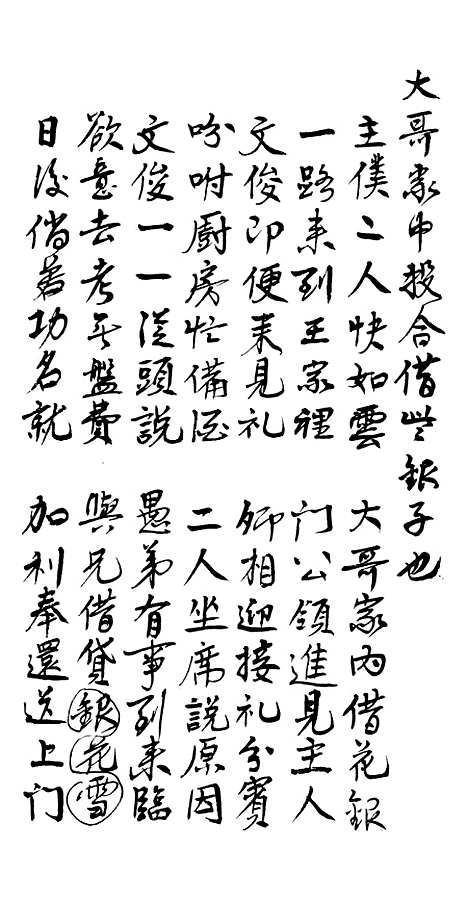 大哥家中投合借些銀子也
主僕二人快如雲 大哥家内借花銀
一路来到王家裡 门公領進見主人
文俊即便来見礼 卿相迎接礼分賓
吩咐厨房忙備酒 二人坐席説原因
文俊一一從頭説 愚弟有事到来臨
欲意去考無盤費 與兄借貸銀花雪
日後倘若功名就 加利奉還送上门